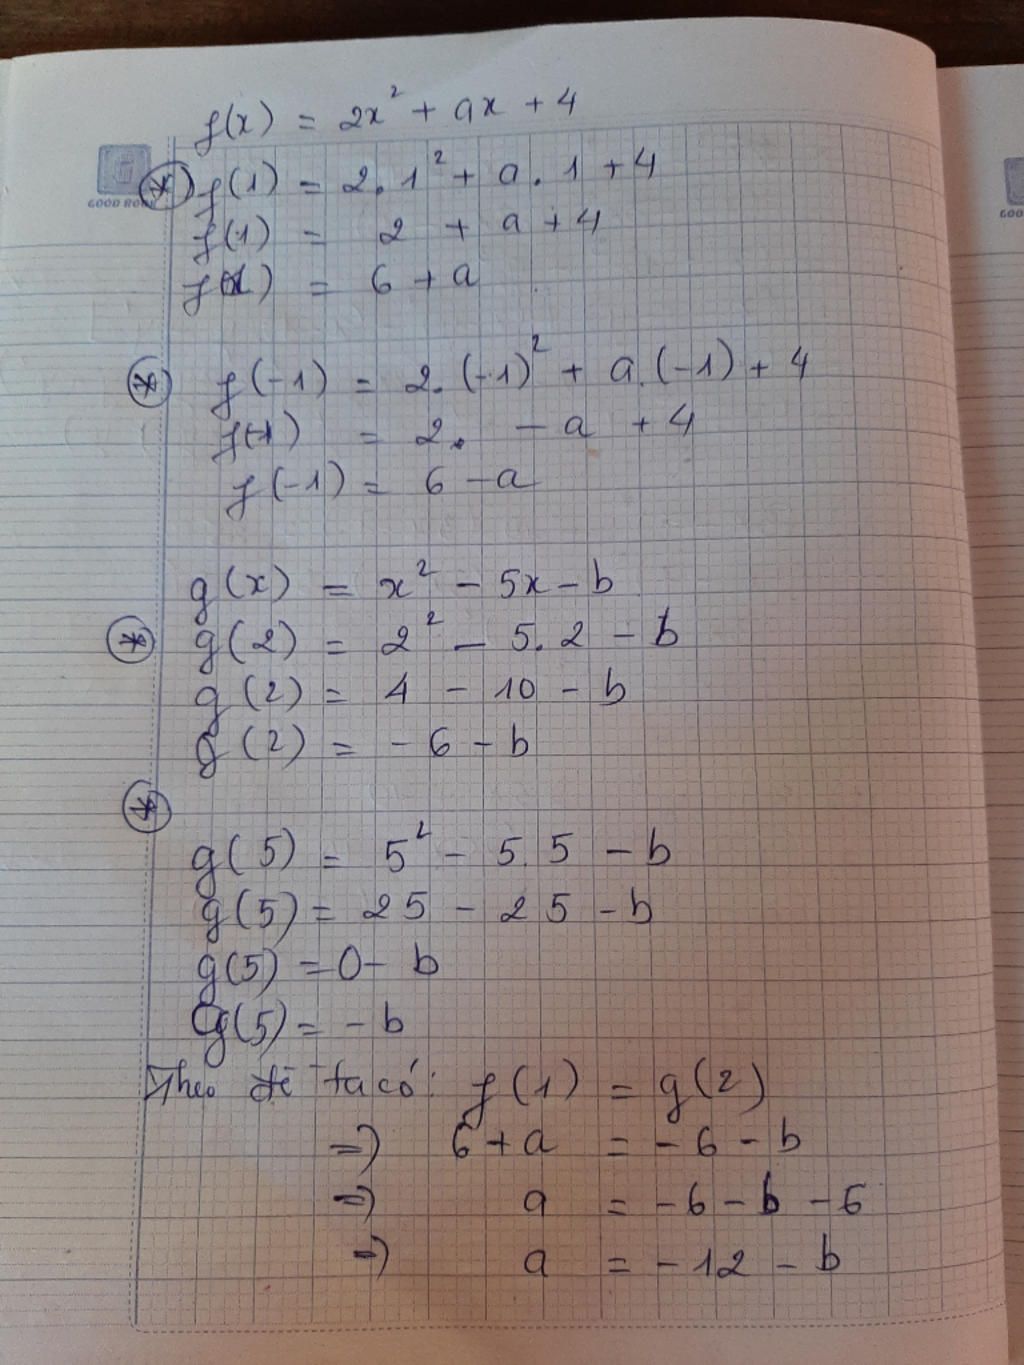 f(x) = 2x² + ax + 4
GOOD BOOK
f(1) = 2.1² + a.1 + 4
f(1) = 2 + a + 4
f(1) = 6 + a
f(-1) = 2.(-1)² + a.(-1) + 4
f(-1) = 2. - a + 4
f(-1) = 6 - a
g(x) = x² - 5x - b
g(2) = 2² - 5.2 - b
g(2) = 4 - 10 - b
g(2) = -6 - b
g(5) = 5² - 5.5 - b
g(5) = 25 - 25 - b
g(5) = 0 - b
g(5) = -b
Theo đề ta có: f(1) = g(2)
=) 6 + a = -6 - b
=) a = -6 - b - 6
=) a = -12 - b